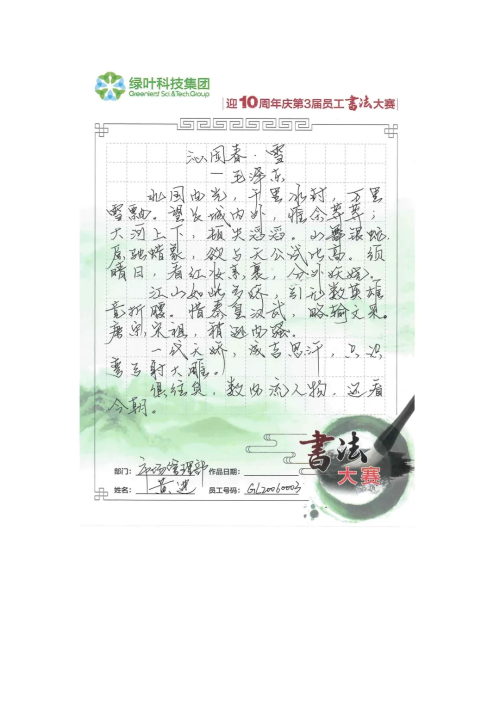 绿叶科技集团
Greenleaf Sci &Tech.Group
迎10周年庆第3届员工书法大赛
沁园春·雪
—毛泽东
北国西光，千里冰封，万里
雪飘。望长城内外，惟余莽莽；
大河上下，顿失滔滔。山舞银蛇，
原驰蜡象，欲与天公试比高。须
晴日，看红妆素裹，分外妖娆。
江山如此多娇，引无数英雄
竞折腰。惜秦皇汉武，略输文采。
唐宗宋祖，稍逊风骚。
一代天骄，成吉思汗，只识
弯弓射大雕。
俱往矣，数风流人物，还看
今朝。
书法
大赛
部门：市场管理部 作品日期：
姓名：黄进 员工号码：GL20060003